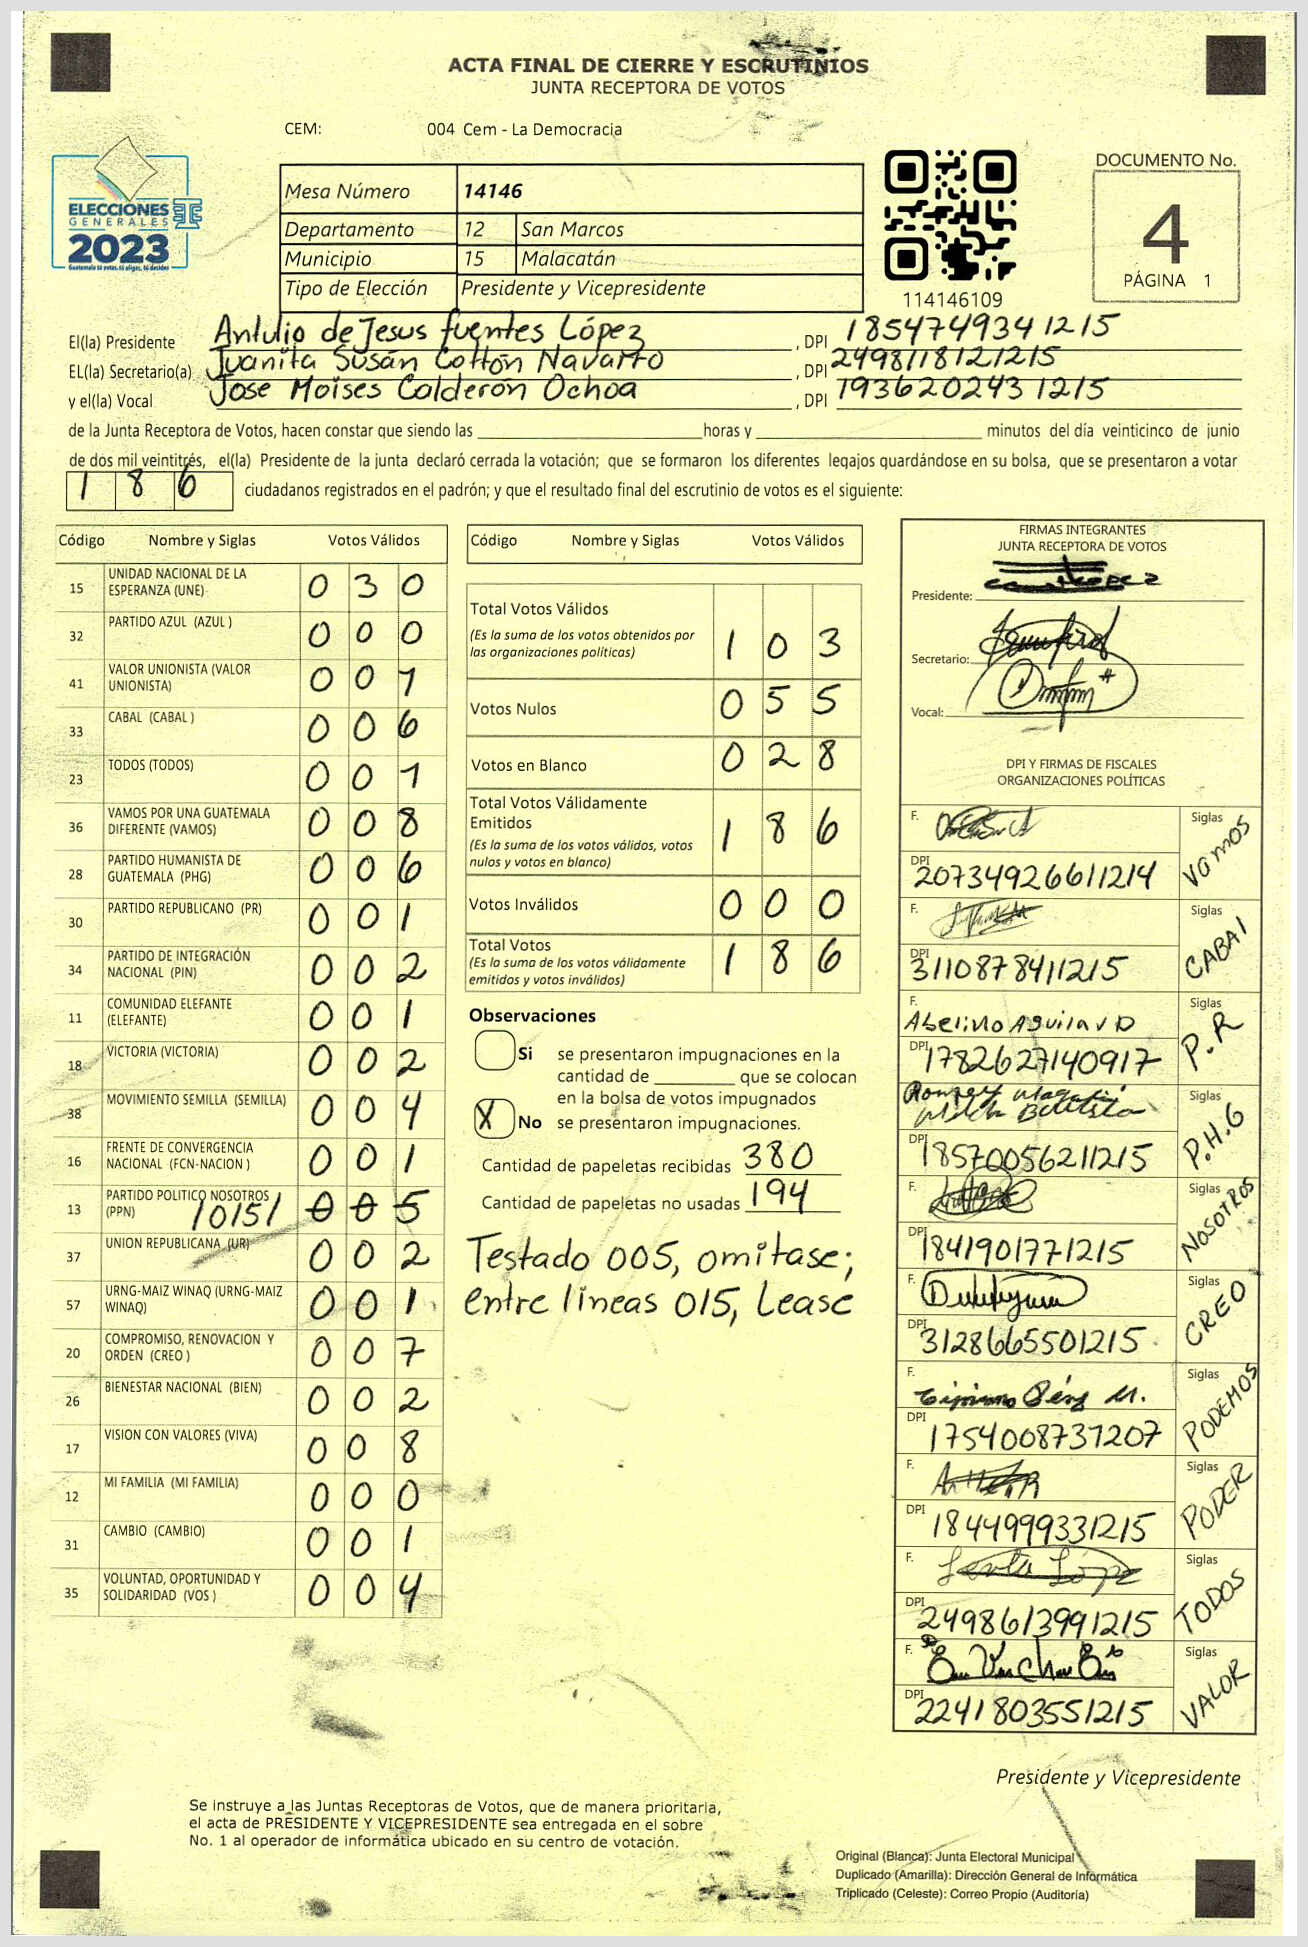 ACTA FINAL DE CIERRE Y ESCRUTINIOS
JUNTA RECEPTORA DE VOTOS
CEM: 004 Cem - La Democracia
ELECCIONES
GENERALES
2023
Guatemala tú votas, tú eliges, tú decides
Mesa Número 14146
Departamento 12 San Marcos
Municipio 15 Malacatán
Tipo de Elección Presidente y Vicepresidente
114146109
DOCUMENTO No.
4
PÁGINA 1
El(la) Presidente Antulio de Jesus fuentes López, DPI 1854749341215
EL(la) Secretario(a) Juanita Susán Cottón Navarro, DPI 2498118121215
y el(la) Vocal Jose Moises Calderón Ochoa, DPI 1936202431215
de la Junta Receptora de Votos, hacen constar que siendo las ____ horas y ____ minutos del día veinticinco de junio
de dos mil veintitrés, el(la) Presidente de la junta declaró cerrada la votación; que se formaron los diferentes legajos quardándose en su bolsa, que se presentaron a votar
186 ciudadanos registrados en el padrón; y que el resultado final del escrutinio de votos es el siguiente:
Código Nombre y Siglas Votos Válidos
15 UNIDAD NACIONAL DE LA ESPERANZA (UNE) 0 3 0
32 PARTIDO AZUL (AZUL ) 0 0 0
41 VALOR UNIONISTA (VALOR UNIONISTA) 0 0 1
33 CABAL (CABAL ) 0 0 6
23 TODOS (TODOS) 0 0 1
36 VAMOS POR UNA GUATEMALA DIFERENTE (VAMOS) 0 0 8
28 PARTIDO HUMANISTA DE GUATEMALA (PHG) 0 0 6
30 PARTIDO REPUBLICANO (PR) 0 0 1
34 PARTIDO DE INTEGRACIÓN NACIONAL (PIN) 0 0 2
11 COMUNIDAD ELEFANTE (ELEFANTE) 0 0 1
18 VICTORIA (VICTORIA) 0 0 2
38 MOVIMIENTO SEMILLA (SEMILLA) 0 0 4
16 FRENTE DE CONVERGENCIA NACIONAL (FCN-NACION ) 0 0 1
13 PARTIDO POLITICO NOSOTROS (PPN) /015/ 0 0 5
37 UNION REPUBLICANA (UR) 0 0 2
57 URNG-MAIZ WINAQ (URNG-MAIZ WINAQ) 0 0 1
20 COMPROMISO, RENOVACION Y ORDEN (CREO ) 0 0 7
26 BIENESTAR NACIONAL (BIEN) 0 0 2
17 VISION CON VALORES (VIVA) 0 0 8
12 MI FAMILIA (MI FAMILIA) 0 0 0
31 CAMBIO (CAMBIO) 0 0 1
35 VOLUNTAD, OPORTUNIDAD Y SOLIDARIDAD (VOS ) 0 0 4
Código Nombre y Siglas Votos Válidos
Total Votos Válidos 1 0 3
(Es la suma de los votos obtenidos por
las organizaciones políticas)
Votos Nulos 0 5 5
Votos en Blanco 0 2 8
Total Votos Válidamente
Emitidos 1 8 6
(Es la suma de los votos válidos, votos
nulos y votos en blanco)
Votos Inválidos 0 0 0
Total Votos 1 8 6
(Es la suma de los votos válidamente
emitidos y votos inválidos)
Observaciones
Si se presentaron impugnaciones en la
cantidad de ____ que se colocan
en la bolsa de votos impugnados
X No se presentaron impugnaciones.
Cantidad de papeletas recibidas 380
Cantidad de papeletas no usadas 194
Testado 005, omitase;
entre líneas 015, Lease
FIRMAS INTEGRANTES
JUNTA RECEPTORA DE VOTOS
Presidente:
Secretario:
Vocal:
DPI Y FIRMAS DE FISCALES
ORGANIZACIONES POLÍTICAS
F. Siglas Vamos
DPI 2073492661214
F. Siglas CABAl
DPI 3110878411215
F. Abelino Aguilar D Siglas P.R
DPI 1782627140917
F. Siglas P.H.G
DPI 18570056211215
F. Siglas NOSOTROS
DPI 1841901771215
F. Siglas CREO
DPI 3128665501215
F. Siglas PODEMOS
DPI 1754008731207
F. Siglas PODER
DPI 1844999331215
F. Siglas TODOS
DPI 2498613991215
F. Siglas VALOR
DPI 2241803551215
Presidente y Vicepresidente
Se instruye a las Juntas Receptoras de Votos, que de manera prioritaria,
el acta de PRESIDENTE Y VICEPRESIDENTE sea entregada en el sobre
No. 1 al operador de informática ubicado en su centro de votación.
Original (Blanca): Junta Electoral Municipal
Duplicado (Amarilla): Dirección General de Informática
Triplicado (Celeste): Correo Propio (Auditoría)